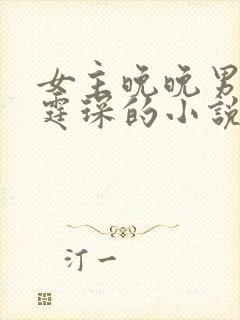 女主晚晚男
霆琛的小說
汀一